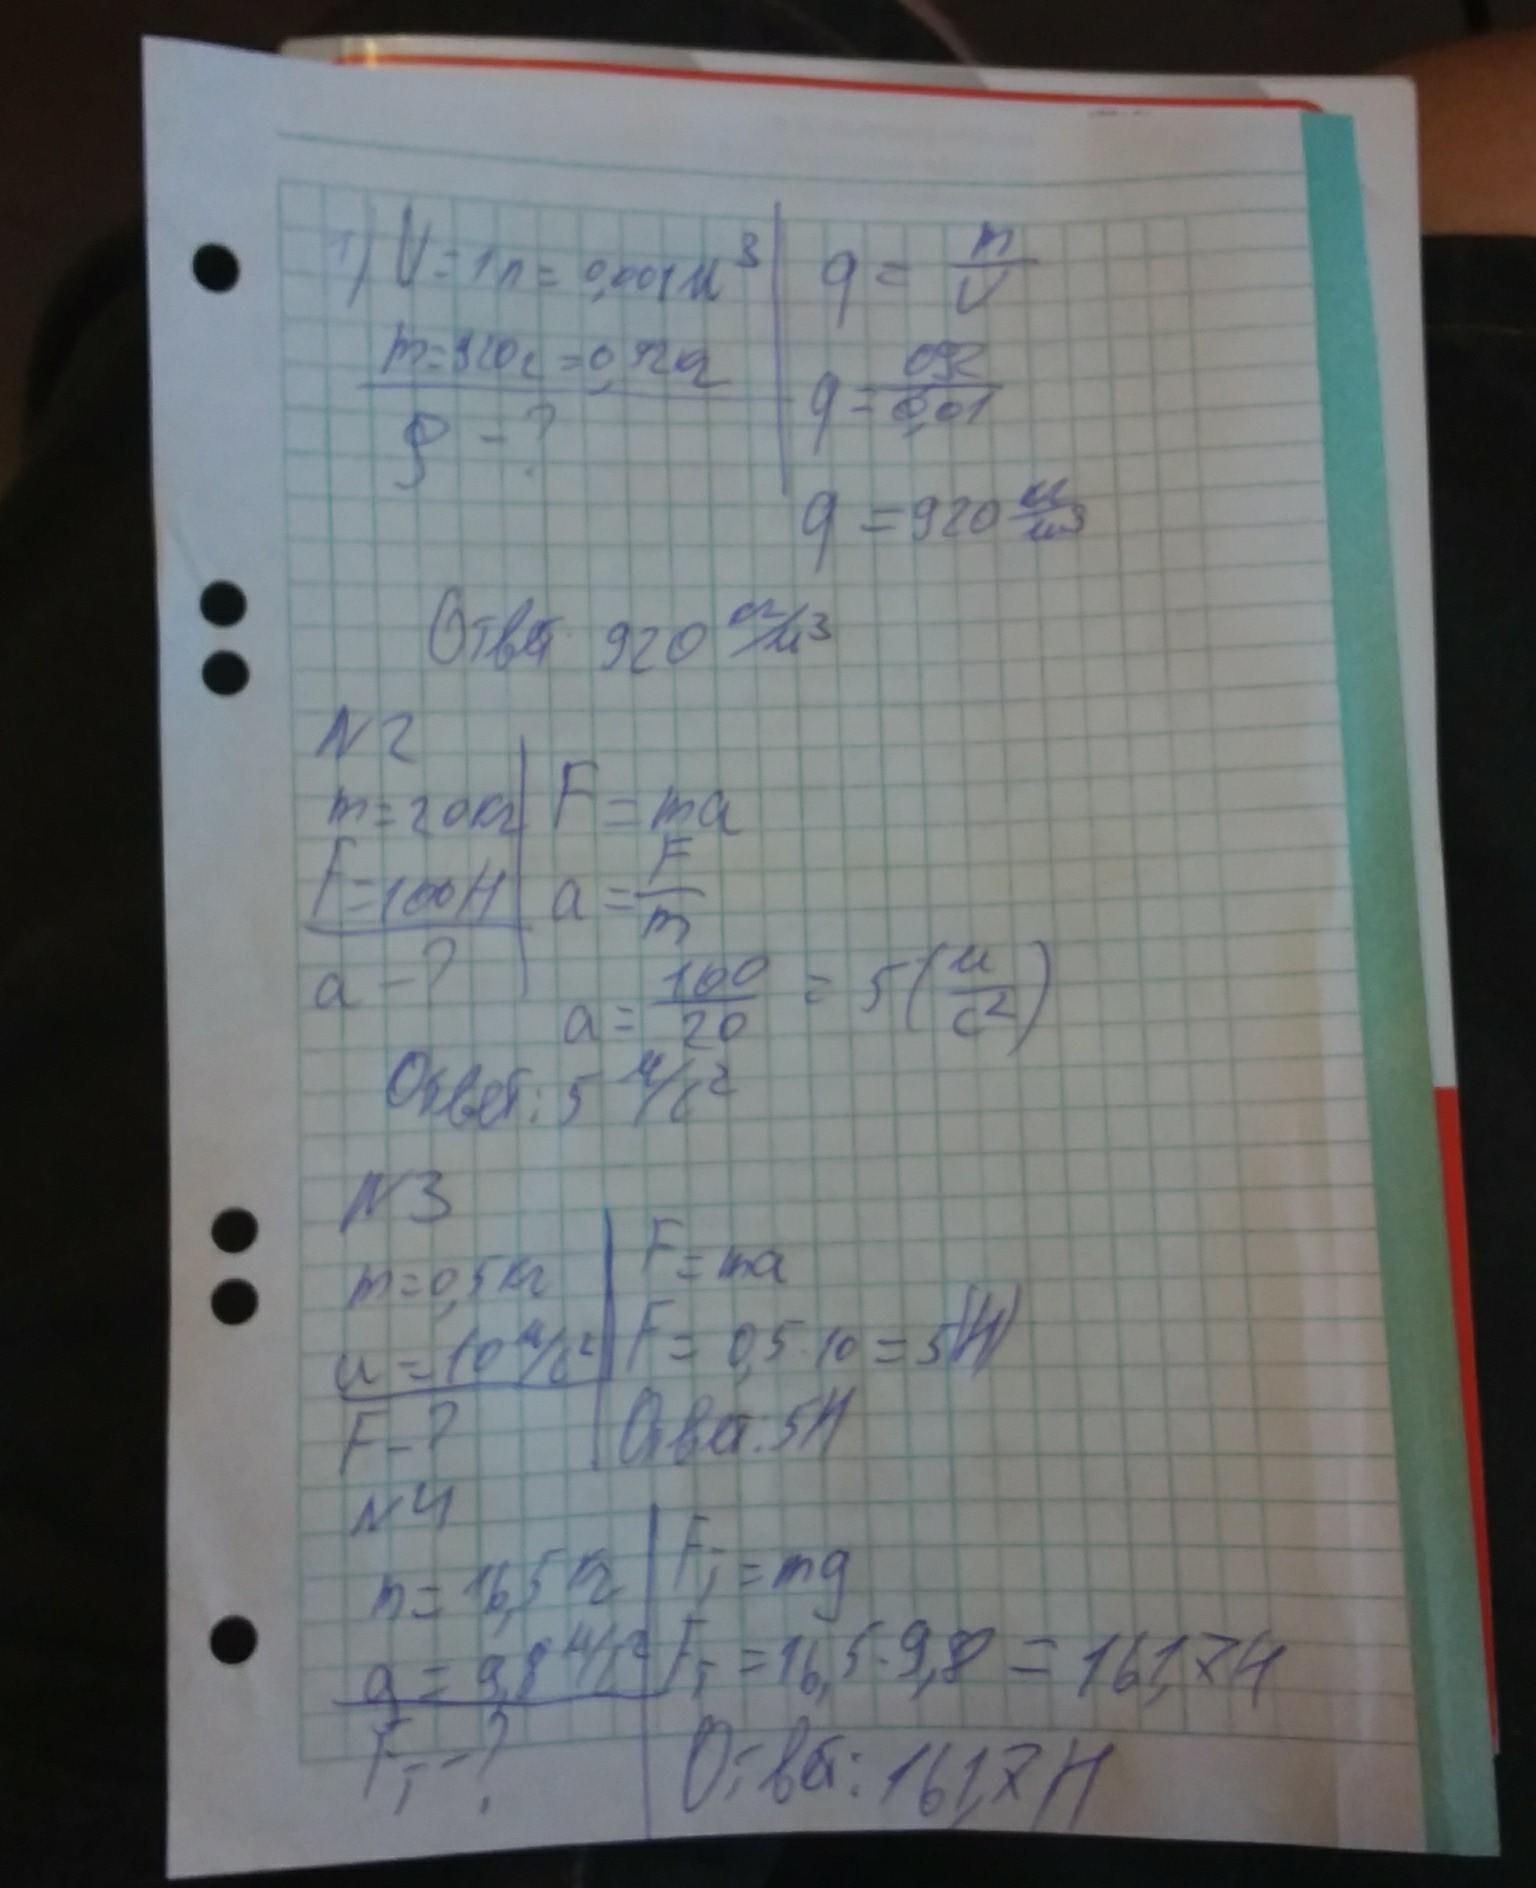 1) V=1л=0,001м³
m=920г=0,92кг
ρ-?
q = m/V
q = 0,92/0,01
q = 920 кг/м³
Ответ 920 кг/м³
N2
m=20кг
F=100Н
a-?
F=ma
a=F/m
a=100/20=5(м/с²)
Ответ: 5 м/с²
N3
m=0,5кг
a=10м/с²
F-?
F=ma
F=0,5·10=5(Н)
Ответ: 5Н
N4
m=16,5кг
g=9,8м/с²
Fт-?
Fт=mg
Fт=16,5·9,8=161,7Н
Ответ: 161,7Н